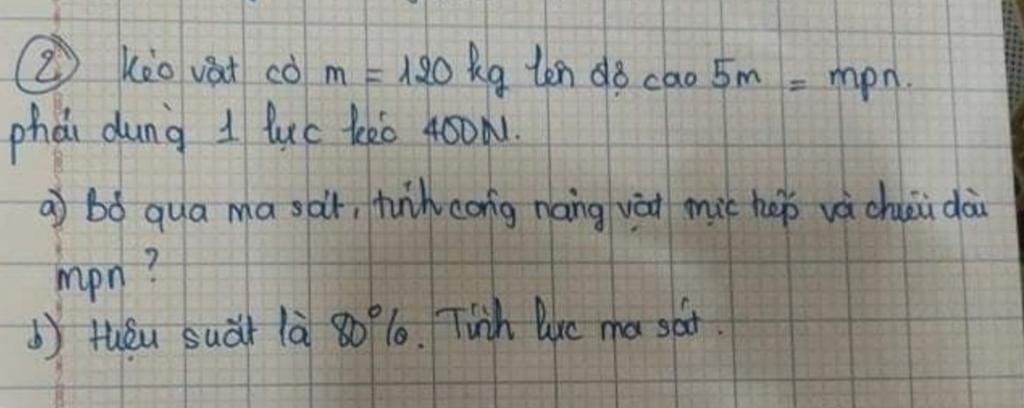 ② Kéo vật có m = 120 kg lên độ cao 5m = mpn.
phải dùng 1 lực kéo 400N.
a) bỏ qua ma sát, tính công nâng vật trực tiếp và chiều dài
mpn ?
b) Hiệu suất là 80%. Tính lực ma sát.